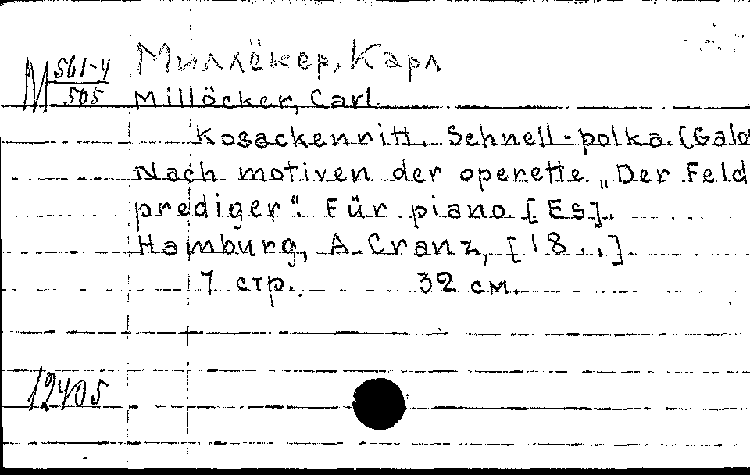 Миллёкер, Карл
М 561-4
505
Millöcker, Carl.
Kosackenritt. Schnell-polka. [Galo
Nach motiven der operette „Der Feld
prediger". Für piano [Es].
Hamburg, A. Cranz, [18..].
7 стр. 32 см.
12405